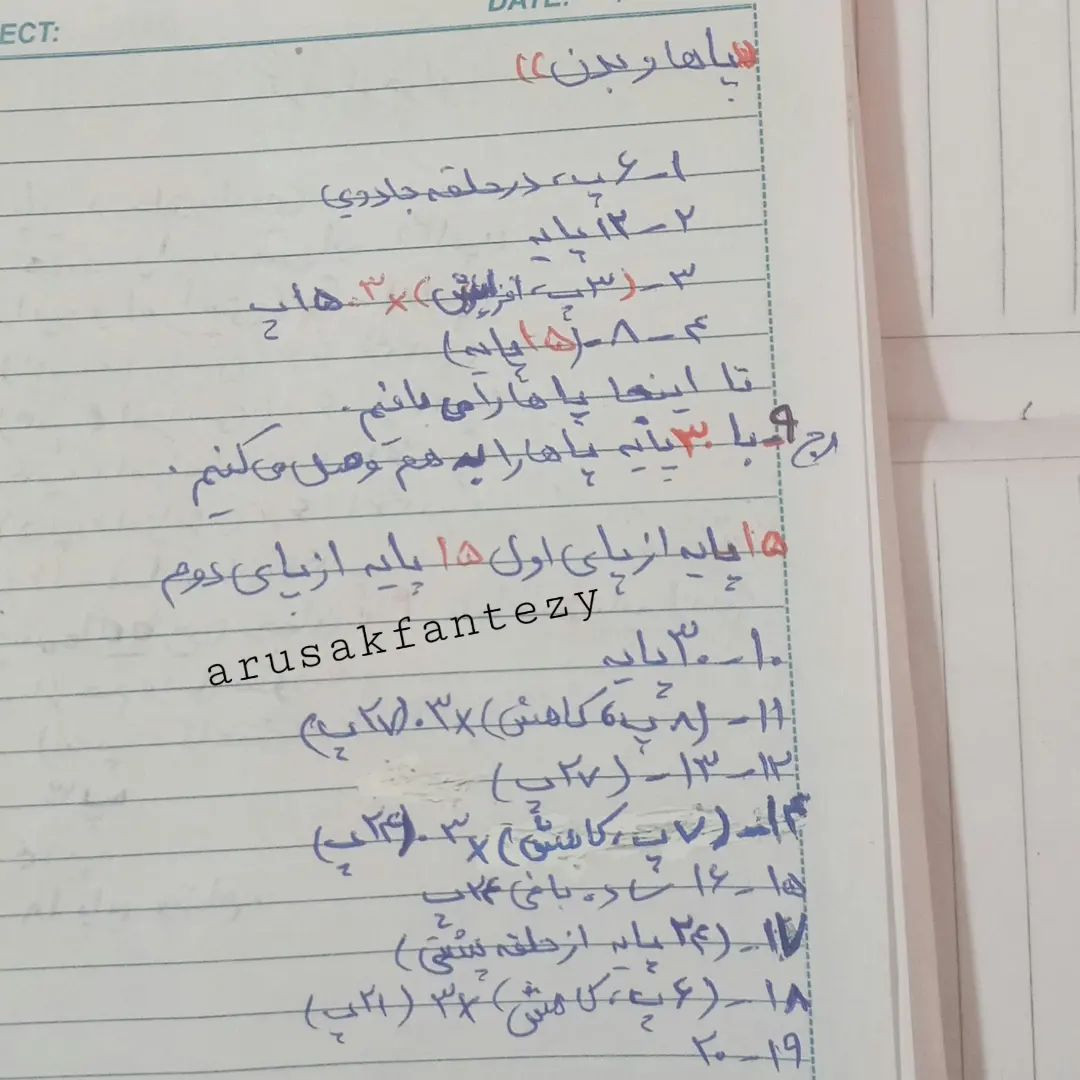 ECT:
DATE:
«پاها و بدن»
۱_ ۶پ، درحلقه جادوی
۲_ ۱۲پایه
۳_ (۳پ، افزایش)×۳. ۱۵پ
۴_۸_(۱۵پایه)
تا اینجا پاها را می بافیم.
رج ۹_ با ۳۰ پایه پاها را به هم وصل می کنیم.
۱۵ پایه از پای اول ۱۵ پایه از پای دوم
arusakfantezy
۱۰_ ۳۰پایه
۱۱_ (۸پ، کاهش)×۳. (۲۷پ)
۱۲_۱۳_ (۲۷پ)
۱۴_ (۷پ، کاهش)×۳. (۲۴پ)
۱۵_۱۶ ساده بافی ۲۴پ
۱۷_(۲۴ پایه از حلقه پشتی)
۱۸_(۶پ، کاهش)×۳ (۲۱پ)
۱۹_۲۰